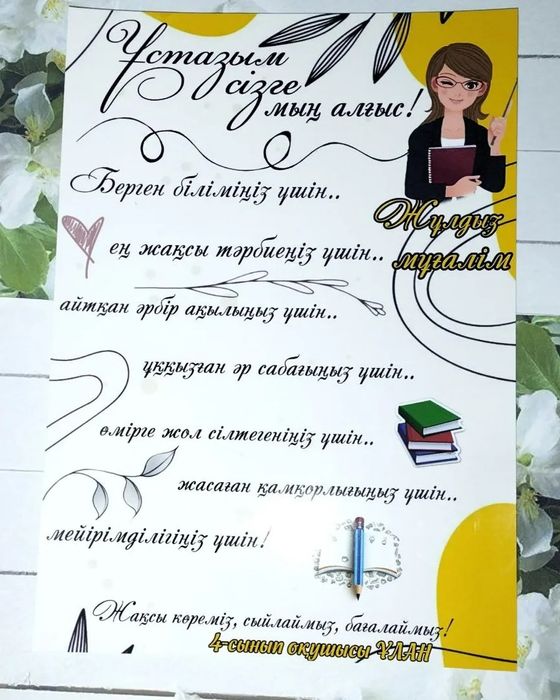 Ұстазым
сізге
мың алғыс!
Берген біліміңіз үшін..
Жұлдыз
мұғалім
ең жақсы тәрбиеңіз үшін..
айтқан әрбір ақылыңыз үшін..
ұққызған әр сабағыңыз үшін..
өмірге жол сілтегеніңіз үшін..
жасаған қамқорлығыңыз үшін..
мейірімділігіңіз үшін!
Жақсы көреміз, сыйлаймыз, бағалаймыз!
4-сынып оқушысы ҰЛАН